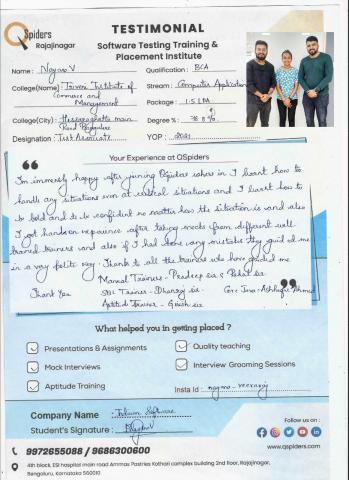 QSpiders
Rajajinagar
TESTIMONIAL
Software Testing Training &
Placement Institute
Name : Nayana V
Qualification : BCA
College(Name) : Institute of
Commerce and
Management
Stream : Computer Application
Package : 1.5 LPM
College(City) : Hesaraghatta main
Road Bangalore
Degree % : %
Designation : Test Associate
YOP : 2021
Your Experience at QSpiders
I'm immensely happy after joining Qspiders where in I learnt how to
handle any situations even at critical situations and I learnt how to
be bold and to be confident no matter how the situation is and also
I got hands on experience after taking mocks from different well
trained trainers and also if I had done any mistakes they guided me
in a very polite way. Thanks to all the trainers who have guided me
Manual Trainers - Pradeep sir &
Trainer - Dhanraj sir.
Thank You
Core Java - Ashfaque Ahmed
Aptitude Trainer - Girish sir
What helped you in getting placed ?
Presentations & Assignments
Quality teaching
Mock Interviews
Interview Grooming Sessions
Aptitude Training
Insta Id :
Company Name : Software
Student's Signature :
Follow us on :
9972655088 / 9686300600
www.qspiders.com
4th block, ESI hospital main road Ammas Pastries Kothari complex building 2nd floor, Rajajinagar,
Bengaluru, Karnataka 560010